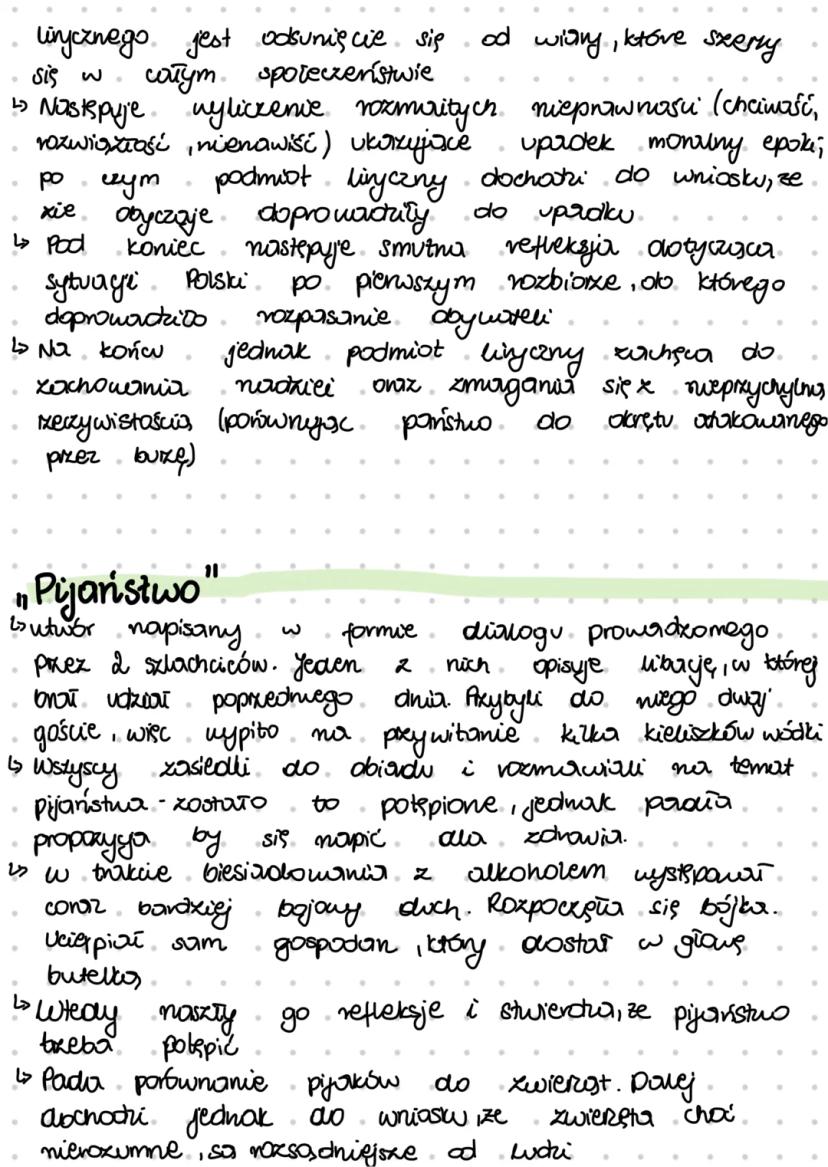 lirycznego jest odsunięcie się od wiary, które szerzy
się w całym społeczeństwie
↳ Następuje wyliczenie rozmaitych nieprawności (chciwość,
rozwiązłość, nienawiść) ukazujące upadek moralny epoki;
po czym podmiot liryczny dochodzi do wniosku, że
złe obyczaje doprowadziły do upadku
↳ Pod koniec następuje smutna refleksja dotycząca
sytuacji Polski po pierwszym rozbiorze, do którego
doprowadziło rozpasanie obywateli
↳ Na końcu jednak podmiot liryczny zachęca do
zachowania nadziei oraz zmagania się z nieprzychylną
rzeczywistością (porównując państwo do okrętu atakowanego
przez burzę)
„Pijaństwo"
↳ utwór napisany w formie dialogu prowadzonego
przez 2 szlachciców. Jeden z nich opisuje libację, w której
brał udział poprzedniego dnia. Przybyli do niego dwaj
goście, więc wypito na przywitanie kilka kieliszków wódki
↳ Wszyscy zasiedli do obiadu i rozmawiali na temat
pijaństwa - zostało to potępione, jednak padła
propozycja by się napić dla zdrowia.
↳ W trakcie biesiadowania z alkoholem występował
coraz bardziej bojowy duch. Rozpoczęła się bójka.
Ucierpiał sam gospodarz, który dostał w głowę
butelką
↳ Wtedy naszły go refleksje i stwierdza, że pijaństwo
trzeba potępić
↳ Pada porównanie pijaków do zwierząt. Dalej
dochodzi jednak do wniosku, że zwierzęta choć
nierozumne, są rozsądniejsze od ludzi